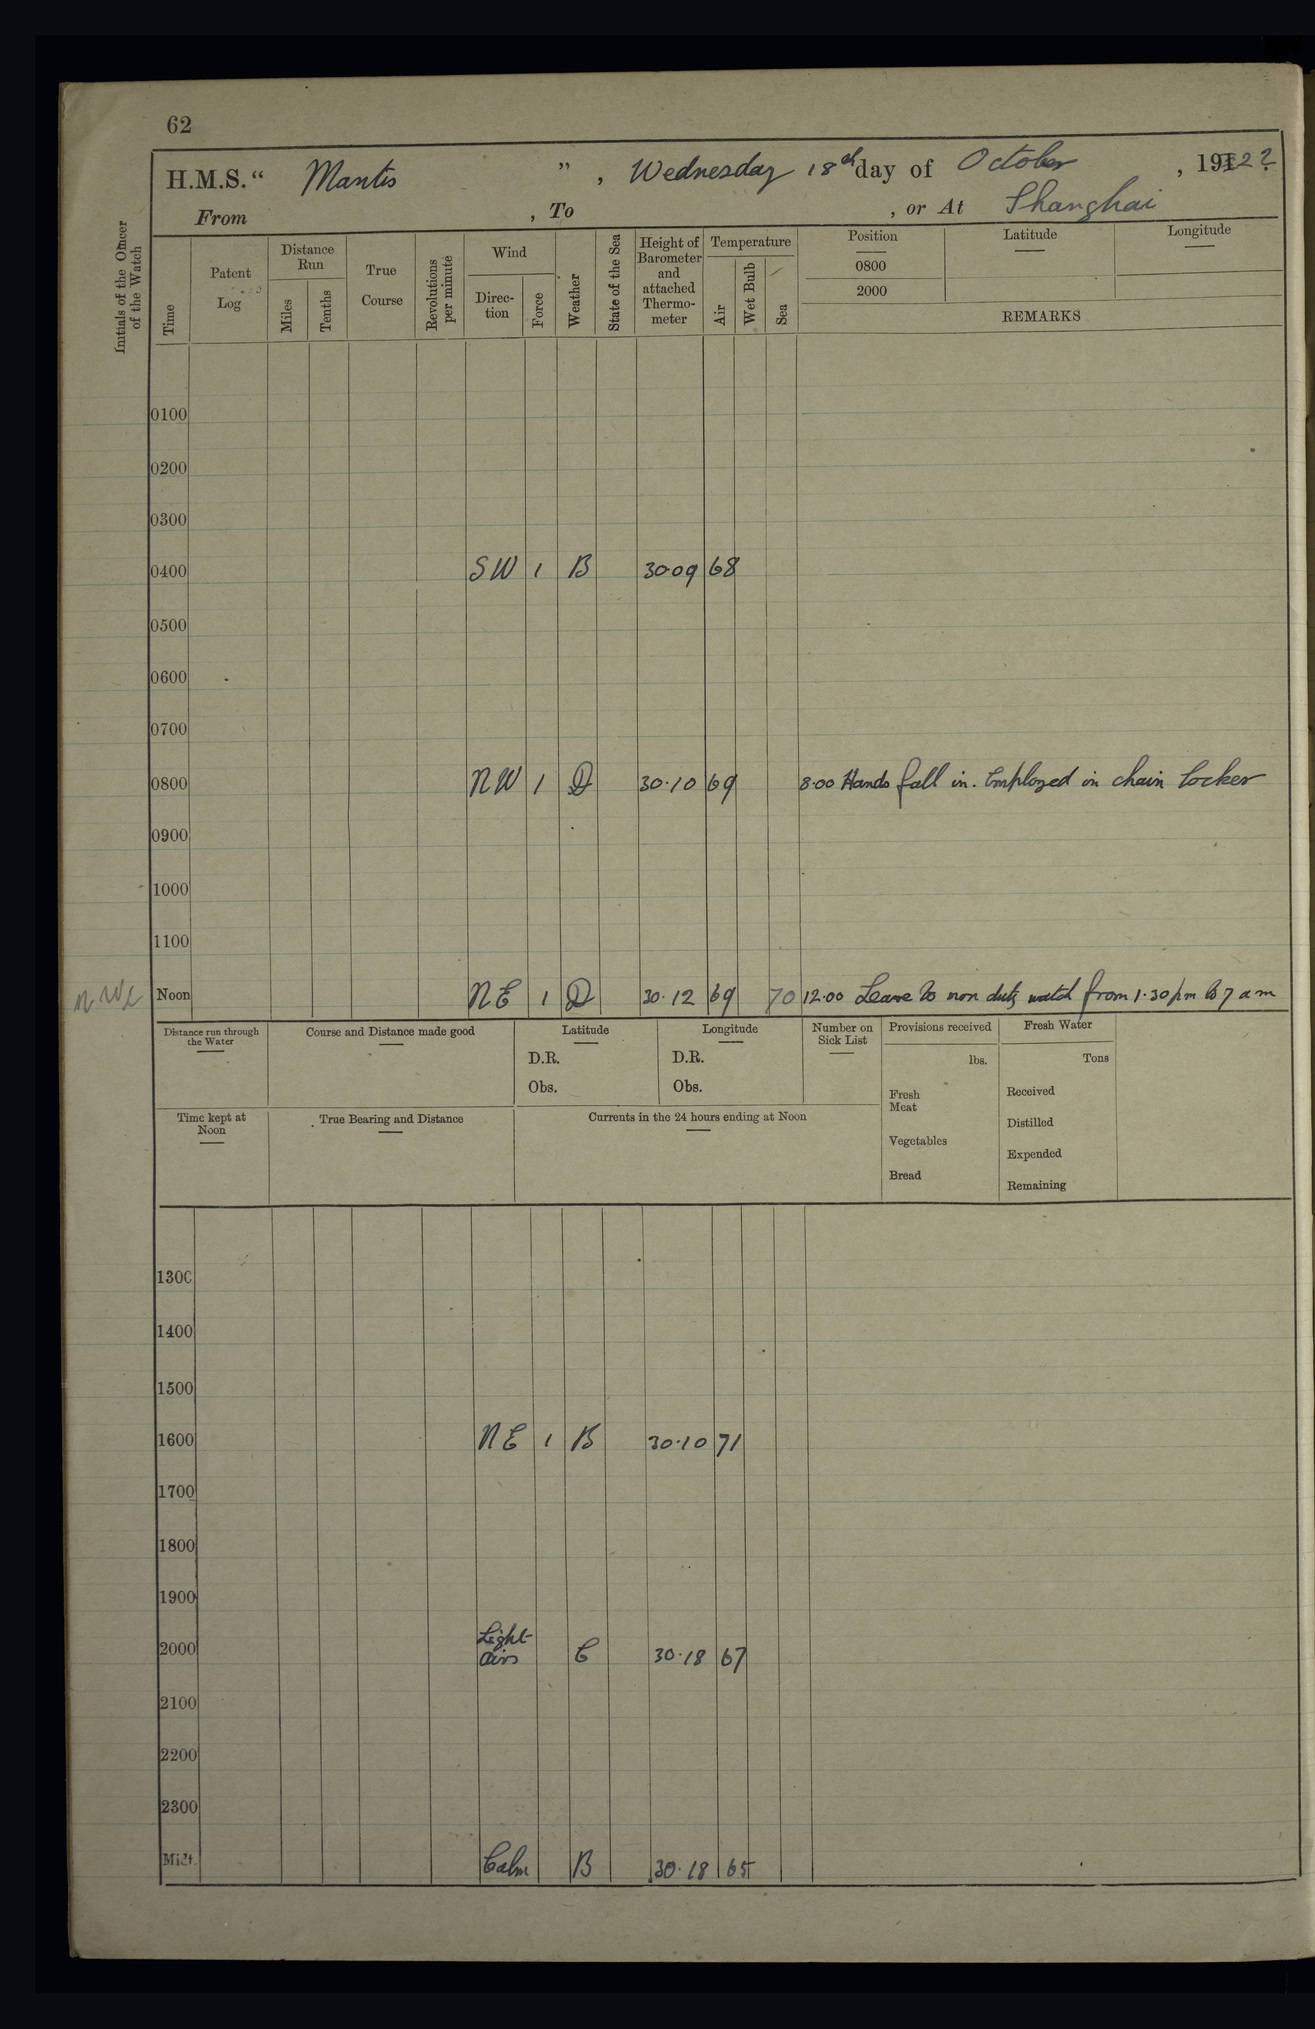 62
H.M.S. "Mantis", Wednesday 18th day of October, 1922
From , To , or At Shanghai
Initials of the Officer of the Watch
Time
Patent Log
Distance Run
Miles
Tenths
True Course
Revolutions per minute
Wind
Direc-tion
Force
Weather
State of the Sea
Height of Barometer and attached Thermo-meter
Temperature
Air
Wet Bulb
Sea
Position
0800
2000
Latitude
Longitude
REMARKS
0100
0200
0300
0400 SW 1 B 30.09 68
0500
0600
0700
0800 NW 1 D 30.10 69 8.00 Hands fall in. Employed in chain locker
0900
1000
1100
Noon NE 1 D 30.12 69 70 12.00 Leave to non duty watch from 1.30pm to 7am
Distance run through the Water
Course and Distance made good
Latitude
D.R.
Obs.
Longitude
D.R.
Obs.
Number on Sick List
Provisions received
lbs.
Fresh Meat
Vegetables
Bread
Fresh Water
Tons
Received
Distilled
Expended
Remaining
Time kept at Noon
True Bearing and Distance
Currents in the 24 hours ending at Noon
1300
1400
1500
1600 NE 1 B 30.10 71
1700
1800
1900
2000 Light airs C 30.18 67
2100
2200
2300
Midt. Calm B 30.18 65